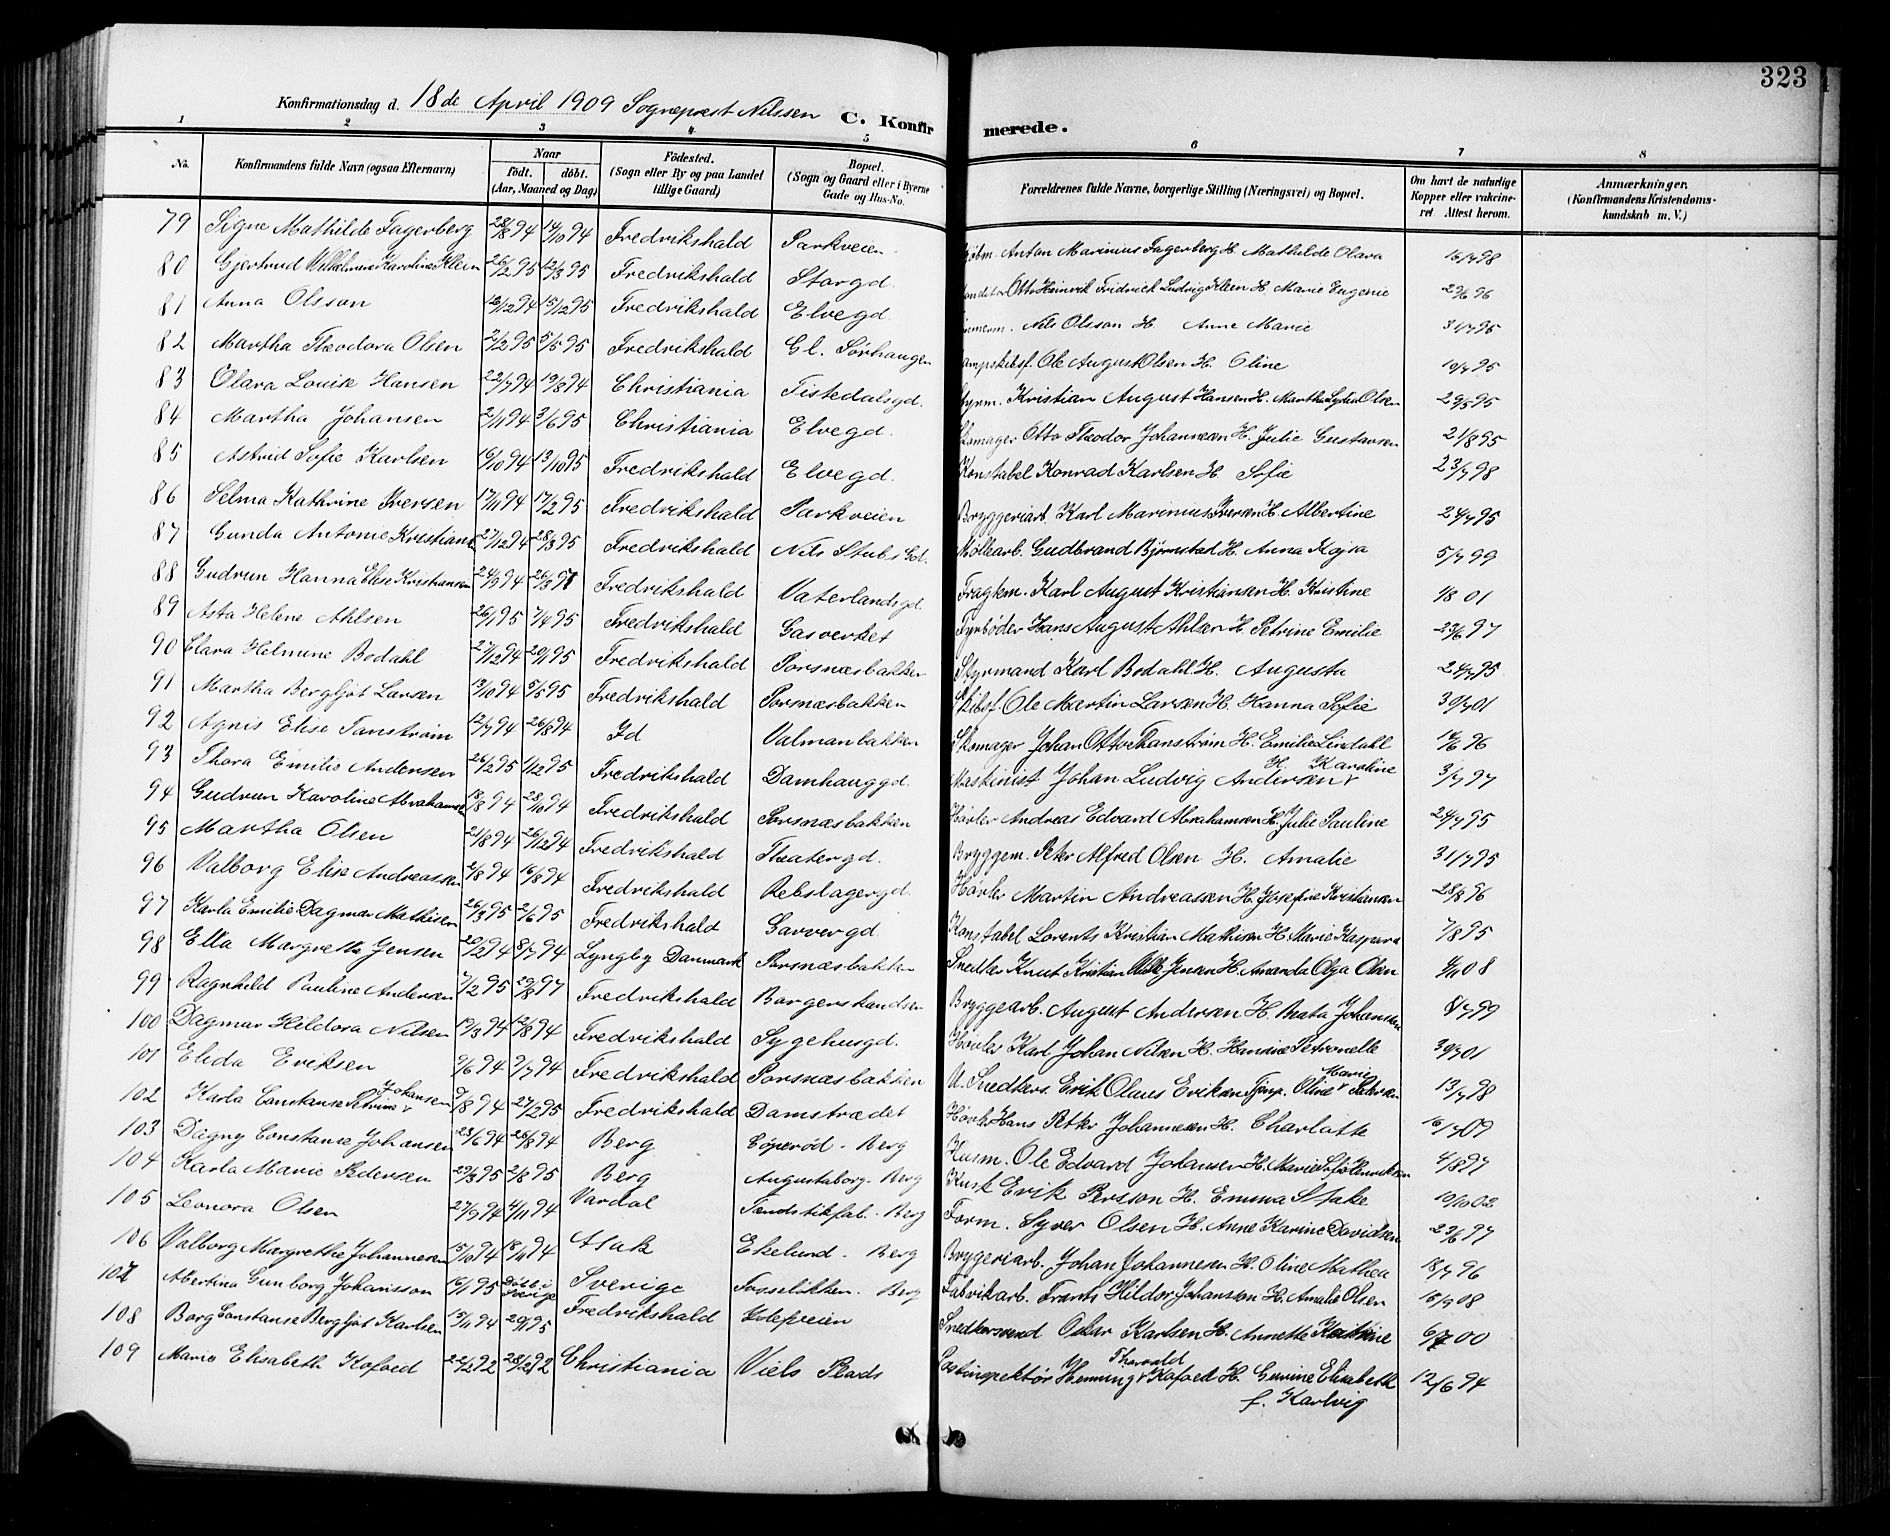 323
Konfirmationsdag d. 18de April 1909 Sogneprest Nilssen C. Konfirmerede.
1 2 3 4 5 6 7 8
No. Konfirmandens fulde Navn (ogsaa Efternavn) Naar födt. döbt. (Aar, Maaned og Dag) Födested. (Sogn eller By og paa Landet tillige Gaard) Bopæl. (Sogn og Gaard eller i Byerne Gade og Hus-No. Forældrenes fulde Navne, borgerlige Stilling (Næringsvei) og Bopæl. Om havt de naturlige Kopper eller vakcineret Attest herom. Anmærkninger. (Konfirmandens Kristendomskundskab m. V.)
79 Signe Mathilde Fagerberg 28/8 94 14/10 94 Fredrikshald Parkveien. Anton Marinius Fagerberg H. Mathilde Olava 16/7 98
80 Gjertrud Vilhelmine Karoline Klein 26/2 95 12/3 95 Fredrikshald Storgd. Otto Heinrik Fridrich Ludvig Kleen H. Marie Eugenie 29/6 96
81 Anna Olsson 12/12 94 15/12 95 Fredrikshald Elvegd. Nils Olsson H. Anne Marie 31/7 95
82 Martha Theodora Olsen 2/2 95 5/5 95 Fredrikshald Gl. Sørhaugen Ole August Olsen H. Oline 19/7 95
83 Olava Louise Hansen 22/7 94 19/8 94 Christiania Tistedalsgd. Styrm. Kristian August Hansen H. Martha Lydia Olsen 29/5 95
84 Martha Johansen 2/11 94 3/6 95 Christiania Elvegd. Skomager Otto Theodor Johannesen H. Julie Gustavsen 21/8 95
85 Astrid Sofie Karlsen 16/10 94 13/10 95 Fredrikshald Elvegd. Konstabel Konrad Karlsen H. Sofie 23/7 98
86 Selma Kathrine Iversen 17/11 94 17/2 95 Fredrikshald Parkveien Bryggeriarb. Karl Marinius Iversen H. Albertine 24/7 95
87 Gunda Antonie Kristians 27/12 94 28/3 95 Fredrikshald Nils Stubs Gd. Møllearb. Gudbrand Bjørnstad H. Anna Kajsa 5/7 99
88 Gudrun Hanna Elise Kristiansen 24/9 94 Fredrikshald Vaterlandsgd. Fragtkm. Karl August Kristiansen H. Kristine 1/8 01
89 Asta Helene Ahlsen 26/1 95 7/4 95 Fredrikshald Gasverket Fyrbøder Hans August Ahlsen H. Petrine Emilie 23/6 97
90 Clara Helmine Bodahl 27/12 94 20/11 95 Fredrikshald Porsnæsbakken Styrmand Karl Bodahl H. Augusta 24/7 95
91 Martha Bergljot Larsen 13/10 94 5/5 95 Fredrikshald Porsnæsbakken Skibsf. Ole Martin Larsen H. Hanna Sofie 30/7 01
92 Agnis Elise Tanstrøm 12/7 94 26/8 94 Id Valmanbakken Skomager Johan Otto Thanstrøm H. Emilie Lindahl 14/6 96
93 Thora Emilie Andersen 26/2 95 1/12 95 Fredrikshald Damhauggd. Maskinist Johan Ludvig Andersen H. Karoline 3/7 97
94 Gudrun Karoline Abrahamsen 18/8 94 28/10 94 Fredrikshald Porsnæsbakken Høvler Andreas Edvard Abrahamsen H. Julie Pauline 24/7 95
95 Martha Olsen 21/8 94 26/12 94 Fredrikshald Theatergd. Bryggem. Peter Alfred Olsen H. Amalie 31/7 95
96 Valborg Elise Andreassen 2/8 94 16/8 94 Fredrikshald Rebslagergd. Høvler Martin Andreassen H. Josefine Kristiansen 28/8 96
97 Karla Emilie Dagmar Mathisen 26/3 95 2/6 95 Fredrikshald Garvergd. Konstabel Lorents Kristian Mathisen H. Marie Kaspara 7/8 95
98 Ella Margrethe Jensen 20/2 94 8/7 94 Lyngby Danmark Porsnæsbakken Snedker Knut Kristian Jensen H. Amanda Olga Olsen 4/11 08
99 Ragnhild Pauline Andersen 7/2 95 29/8 97 Fredrikshald Borgerskandsen Bryggearb. August Andersen H. Mata Johansen 4/7 99
100 Dagmar Hildora Nilsen 19/3 94 12/8 94 Fredrikshald Sygehusgd. Høvler Karl Johan Nilsen H. Hansine Petronelle 30/7 01
101 Elida Eriksen 9/6 94 9/7 94 Fredrikshald Porsnæsbakken U. Snedkers. Erik Olaus Eriksen Tjenp. Oline Marie Petersen 13/7 98
102 Karla Constanse Petrine Johansen 9/8 94 27/2 95 Fredrikshald Damstrædet Høvler Hans Peter Johannesen H. Charlotte 16/7 09
103 Dagny Constanse Johansen 23/6 94 26/8 94 Berg Löperød - Berg Husm. Ole Edvard Johansen H. Marie Sofie Henriksen 4/8 97
104 Karla Marie Pedersen 29/3 95 2/8 95 Berg Augustaborg - Berg Kusk Erik Persson H. Emma Stake 10/10 02
105 Leonora Olsen 27/9 94 4/11 94 Vardal Tændstikfab. - Berg Form. Syver Olsen H. Anne Karine Davidsen 23/6 97
106 Valborg Margrethe Johannesen 15/10 94 18/11 94 Asak Ekelund - Berg Bryggeriarb. Johan Johannesen H. Oline Mathea 18/7 96
107 Albertina Gunborg Johansson 16/1 95 Döbt i Sverige Sverige Fosseløkken - Berg Fabrikarb. Frants Hildor Johansson H. Amalie Olsen 18/9 08
108 Borg Constanse Bergljot Karlsen 13/11 94 20/1 95 Fredrikshald Golfveien Snedkersvend Oskar Karlsen H. Annette Katrine 6/7 00
109 Marie Elisabeth Kofoed 22/2 92 28/2 92 Christiania Viels Plads Postinspektör Henning Thorvald Kofoed H. Gunine Elisabeth f. Hartvig 12/6 94